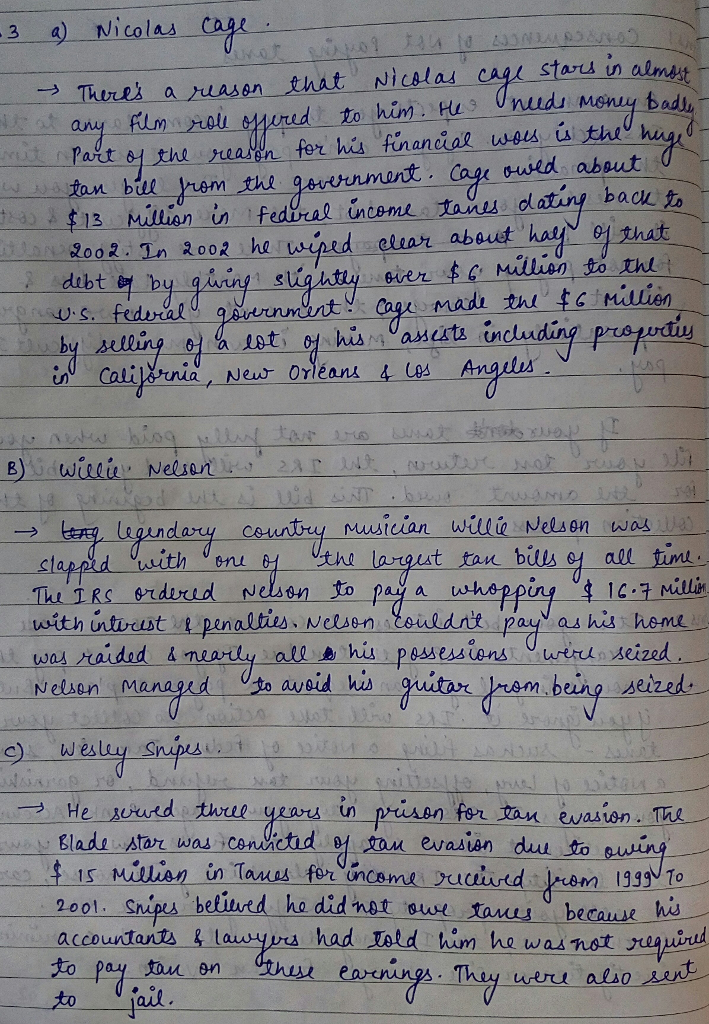 3 a) Nicolas Cage.
→ There's a reason that Nicolas Cage stars in almost
any film role offered to him. He needs money badly
Part of the reason for his financial woes is the huge
tax bill from the government. Cage owed about
$13 Million in federal income taxes dating back to
2002. In 2002 he wiped clear about half of that
debt by giving slightly over $6 Million to the
U.S. federal government. Cage made the $6 Million
by selling of a lot of his assests including properties
in California, New Orleans & Los Angeles.
B) Willie Nelson.
→ legendary country Musician Willie Nelson was
slapped with one of the largest tax bills of all time.
The IRS ordered Nelson to pay a whopping $16.7 Million
with interest & penalties. Nelson couldn't pay as his home
was raided & nearly all his possessions were seized.
Nelson Managed to avoid his guitar from being seized.
C) Wesley Snipes.
→ He served three years in prison for tax evasion. The
Blade star was convicted of tax evasion due to owing
$15 Million in Taxes for income received from 1999 To
2001. Snipes believed he did not owe taxes because his
accountants & lawyers had told him he was not required
to pay tax on these earnings. They were also sent
to jail.